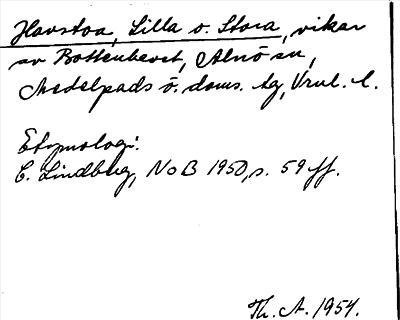 Havstoa, Lilla o. Stora, vikar
av Bottenhavet, Alnö sn,
Medelpads ö. doms. tg, Vnrl. l.
Etymologi:
E. Lindberg, NoB 1950, s. 59 ff.
Th. A. 1954.